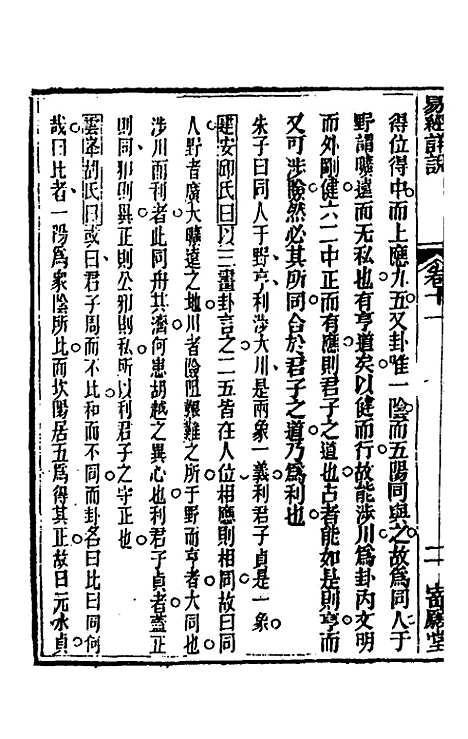 易經詳說
卷十一
二
寄願堂
得位得中而上應九五又卦惟一陰而五陽同與之故爲同人于
野謂曠遠而无私也有亨道矣以健而行故能涉川爲卦内文明
而外剛健六二中正而有應則君子之道也占者能如是則亨而
又可涉險然必其所同合於君子之道乃爲利也
朱子曰同人于野亨利涉大川是兩象一義利君子貞是一象
建安邱氏曰以三畫卦言之二五皆在人位相應則相同故曰同
人野者廣大曠遠之地川者險阻艱難之所于野而亨者大同也
涉川而利者此同舟共濟何患胡越之異心也利君子貞者蓋正
則同邪則異正則公邪則私所以利君子之守正也
雲峯胡氏曰或曰君子周而不比和而不同而卦名曰比曰同何
哉曰比者一陽爲衆陰所比而坎陽居五爲得其正故曰元永貞